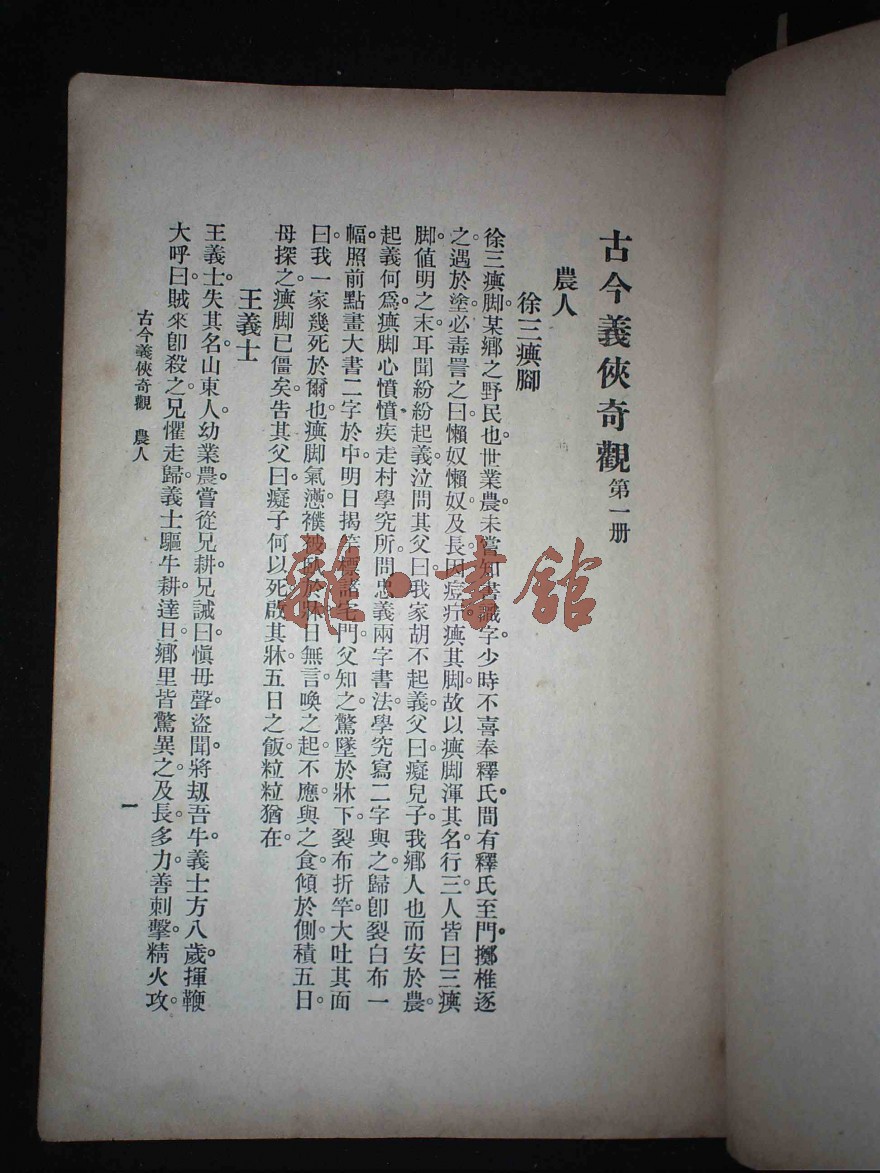 古今義俠奇觀 第一册
農人
徐三瘨腳
徐三瘨脚某鄉之野民也。世業農。未嘗知書識字。少時不喜奉釋氏。間有釋氏至門。擲椎逐
之。遇於塗。必毒詈之曰。懶奴懶奴。及長。因痘疔瘨其脚。故以瘨脚渾其名。行三。人皆曰三瘨
脚。值明之末。耳聞紛紛起義。泣問其父曰。我家胡不起義。父曰。癡兒子。我鄉人也。而安於農。
起義何爲。瘨脚心憤憤。疾走村學究所。問忠義兩字書法。學究寫二字與之。歸卽裂白布一
幅。照前點畫大書二字於中。明日揭竿標諸宅門。父知之。驚墜於牀下。裂布折竿。大吐其面
曰。我一家幾死於爾也。瘨脚氣懣。襆被臥於牀。日無言。喚之起。不應。與之食。傾於側。積五日。
母探之。瘨脚已僵矣。告其父曰。癡子何以死。啟其牀。五日之飯。粒粒猶在。
王義士
王義士。失其名。山東人。幼業農。嘗從兄耕。兄誡曰。愼毋聲。盜聞將刼吾牛。義士方八歲。揮鞭
大呼曰。賊來卽殺之。兄懼走歸。義士驅牛耕達旦。鄉里皆驚異之。及長。多力善刺擊。精火攻。
古今義俠奇觀 農人
一
雜·書館